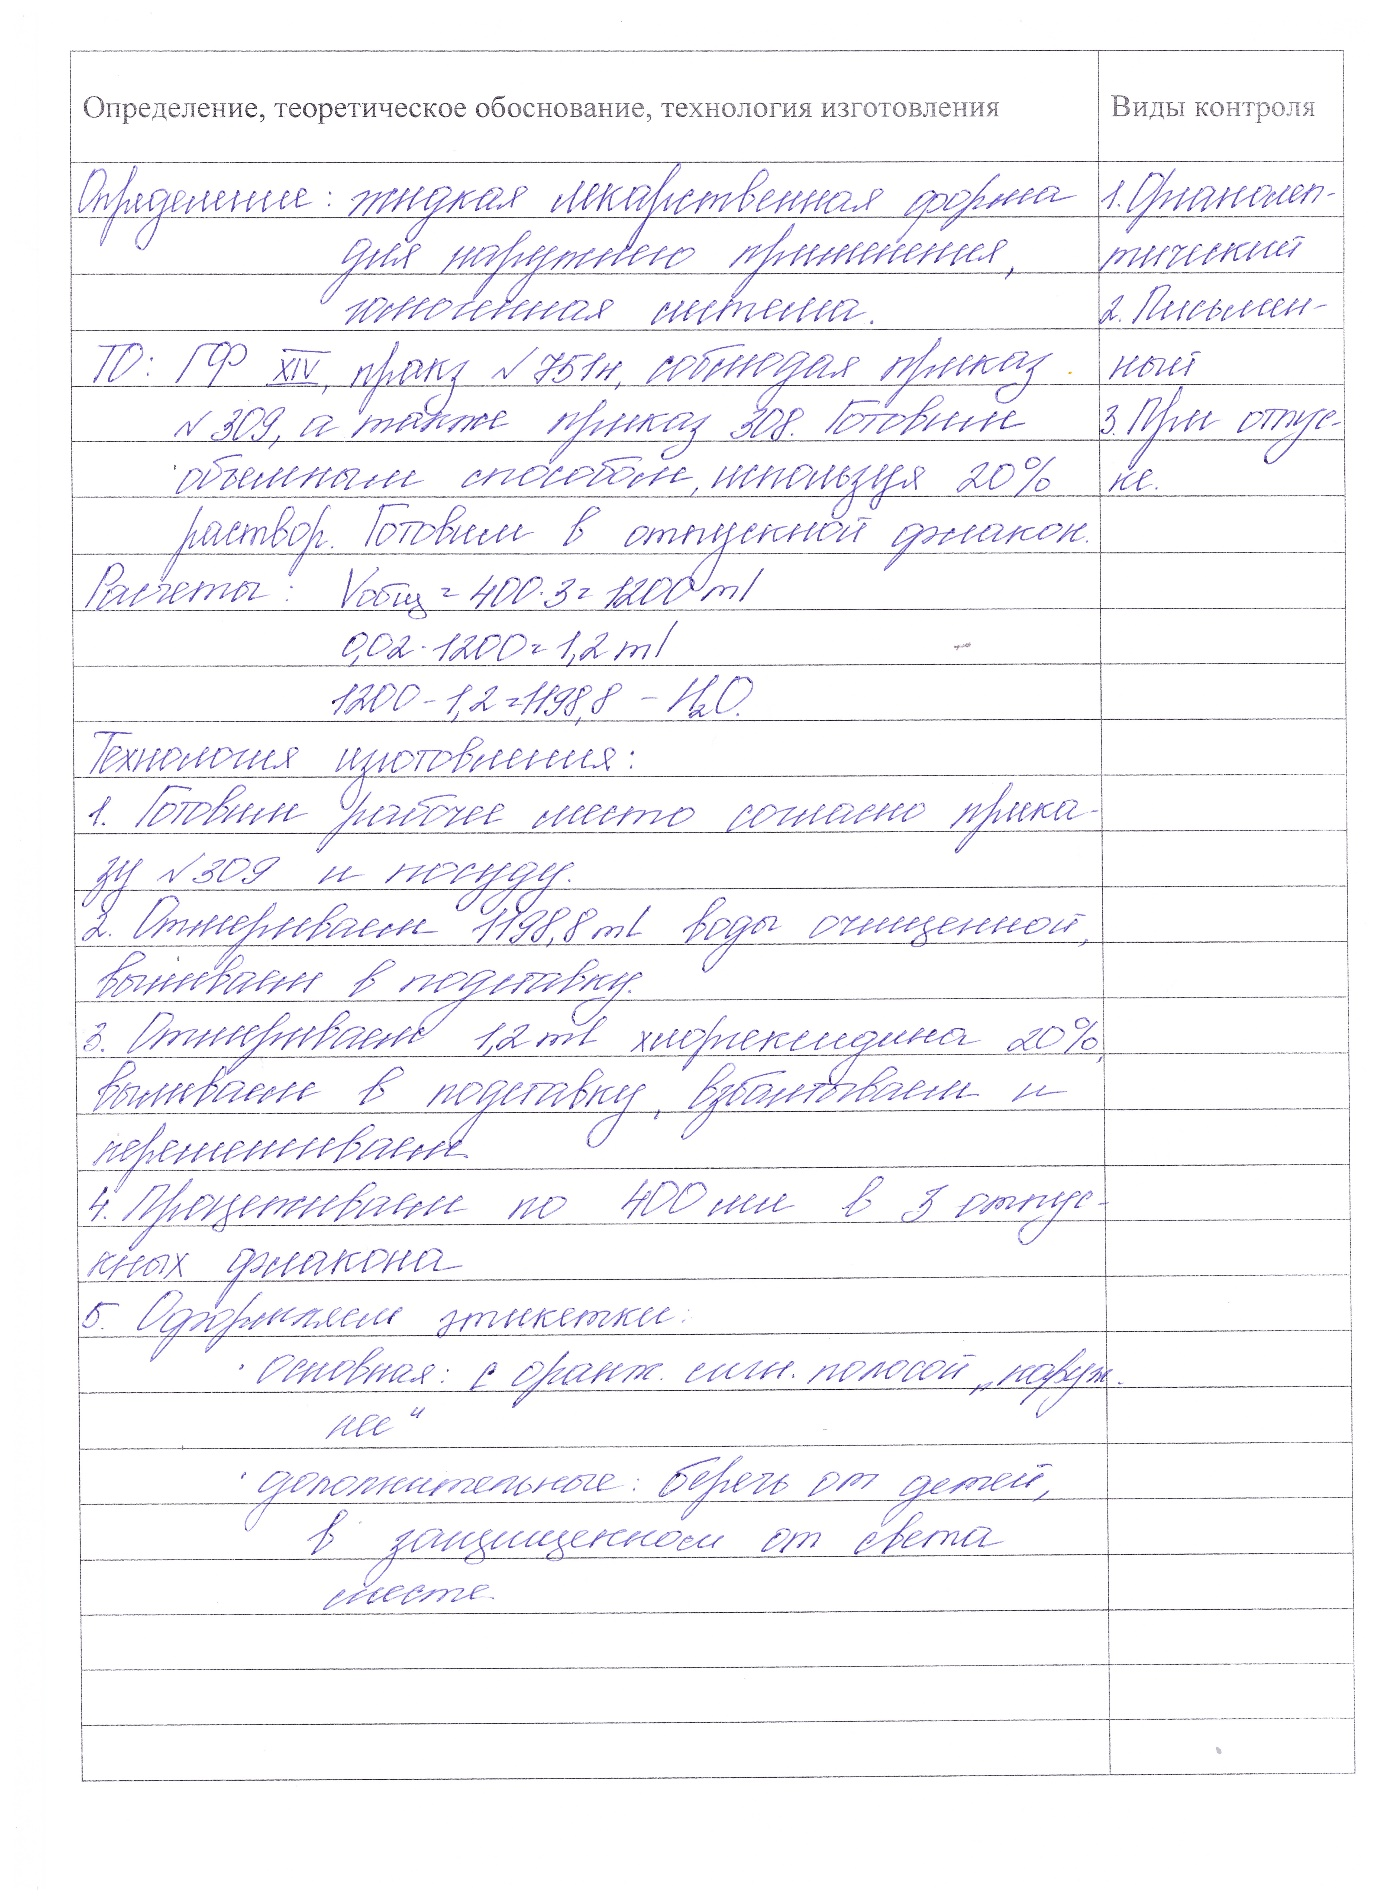 Определение, теоретическое обоснование, технология изготовления
Виды контроля
Определение: жидкая лекарственная форма
для наружнего применения,
гомогенная система.
ТО: ГФ XIV, пракз №751н, соблюдая приказ
№309, а также приказ 308. Готовим
объемным способом, используя 20%
раствор. Готовим в отпускной флакон.
Расчеты: Vобщ = 400·3= 1200 ml
0,02·1200= 1,2 ml
1200 - 1,2 =1198,8 - H2O.
Технология изготовления:
1. Готовим рабочее место согласно прика-
зу №309 и посуду.
2. Отмериваем 1198,8 ml воды очищенной,
выливаем в подставку.
3. Отмериваем 1,2 ml хлоргексидина 20%,
выливаем в подставку, взбалтываем и
перемешиваем.
4. Процеживаем по 400 мл в 3 отпус-
кных флакона
5. Оформляем этикетки:
· основная: с оранж. сигн. полосой „наруж-
нее“
· дополнительные: беречь от детей,
в защищенном от света
месте.
1. Органолеп-
тический
2. Письмен-
ный
3. При отпус-
ке.